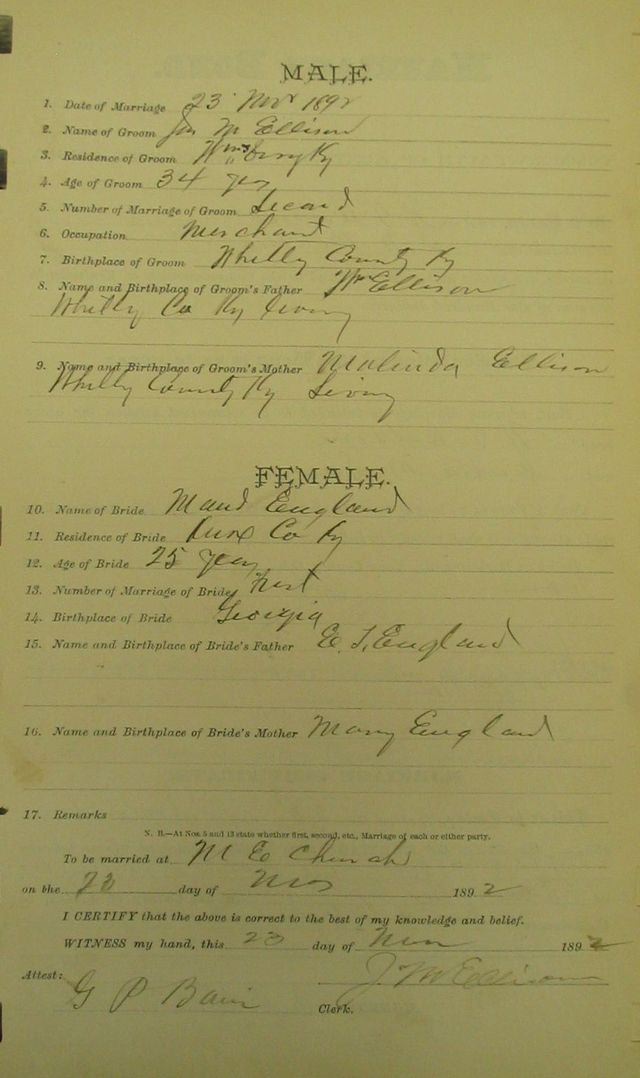 MALE.
1. Date of Marriage 23 Nov 1892
2. Name of Groom Jas M Ellison
3. Residence of Groom Wmsburg Ky
4. Age of Groom 34 yrs
5. Number of Marriage of Groom Second
6. Occupation Merchant
7. Birthplace of Groom Whitley County Ky
8. Name and Birthplace of Groom's Father Wm Ellison
Whitley Co Ky Living
9. Name and Birthplace of Groom's Mother Malinda Ellison
Whitley County Ky Living
FEMALE.
10. Name of Bride Maud England
11. Residence of Bride Co Ky
12. Age of Bride 25 years
13. Number of Marriage of Bride First
14. Birthplace of Bride Georgia
15. Name and Birthplace of Bride's Father E. T. England
16. Name and Birthplace of Bride's Mother Mary England
17. Remarks
N. B.—At Nos. 5 and 13 state whether first, second, etc., Marriage of each or either party.
To be married at M E Church
on the 23 day of Nov 1892
I CERTIFY that the above is correct to the best of my knowledge and belief.
WITNESS my hand, this 23 day of Nov 1892
J. M Ellison
Attest:
G P Bain
Clerk.